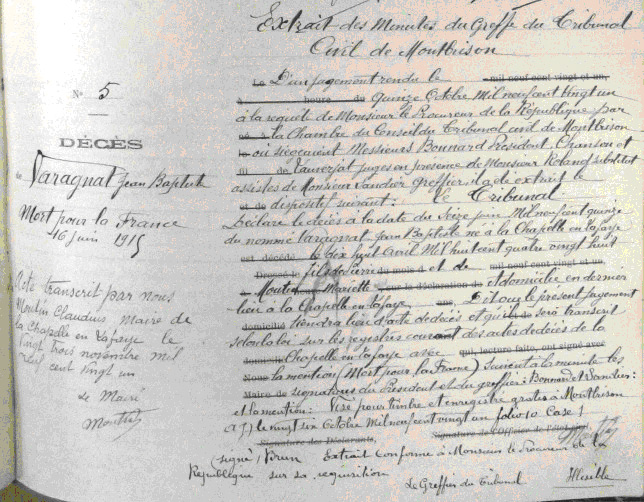 Extrait des Minutes du Greffe du Tribunal
Civil de Montbrison
N° 5
DÉCÈS
de Varagnat Jean Baptiste
Mort pour la France
16 juin 1915
Acte transcrit par nous
Moulin Claudius Maire de
la Chapelle en Lafaye le
vingt trois novembre mil
neuf cent vingt un
Le Maire
D'un jugement rendu le mil neuf cent vingt et un,
heure du quinze Octobre Mil neuf cent vingt un
à la requête de Monsieur le Procureur de la République par
la Chambre du Conseil du Tribunal civil de Montbrison
où siégeaient Messieurs Bonnard Président, Chanson et
juges en présence de Monsieur Roland substitut
assistés de Monsieur greffier, il a été extrait le
dispositif suivant : le Tribunal
Déclare le décès à la date du Seize juin Mil neuf cent quinze
du nommé Varagnat Jean Baptiste né à la Chapelle en Lafaye
est décédé le dix huit avril Mil huit cent quatre vingt huit
Dressé le fils de Pierre du mois d et de mil neuf cent vingt et un,
Mariette sur la déclaration de et domicilié en dernier
lieu à la Chapelle en Lafaye Dit que le présent jugement
domicilié tiendra lieu d'acte de décès et qu'il sera transcrit
selon la loi sur les registres courant des actes de décès de la
domicilié Chapelle en Lafaye avec qui, lecture faite, ont signé avec
Nous la mention (Mort pour la France) Suivent à la minute les
Maire de signatures du Président et du greffier :
et la mention : Visé pour timbre et enregistré gratis à Montbrison
A.J) le vingt six Octobre Mil neuf cent vingt un folio 10 Case 1
Signature des Déclarants, Signature de l'Officier de l'état civil
(signé) Brun Extrait conforme à Monsieur le Procureur de la
République sur sa réquisition
Le Greffier du Tribunal Illisible